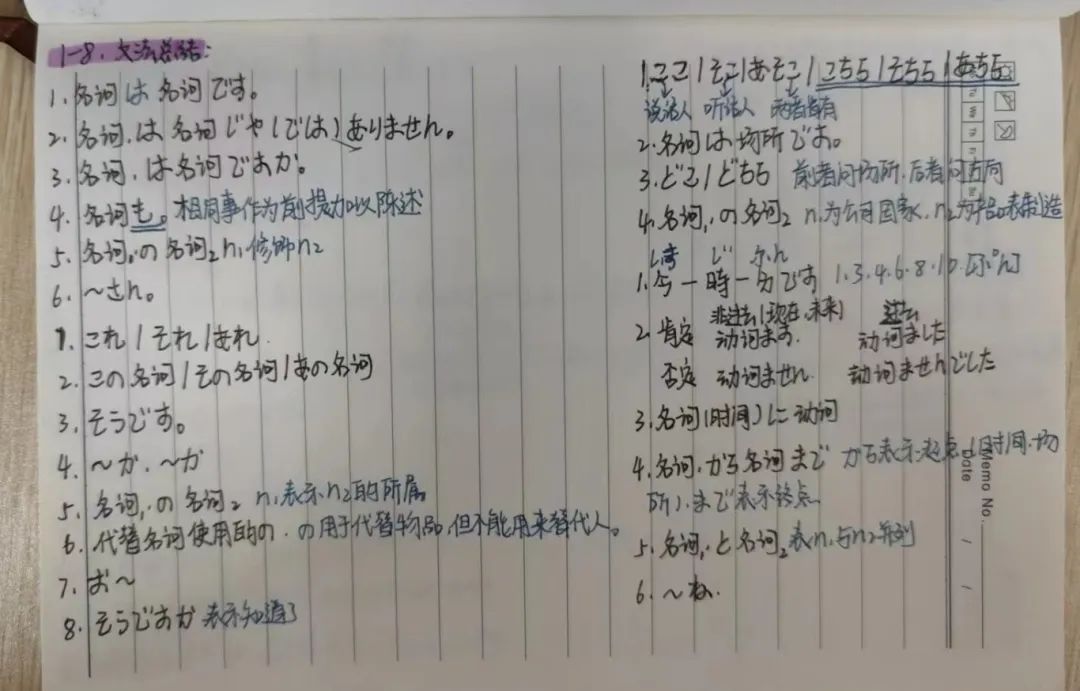 1-8. 文法总结:
1. 名词は名词です。
2. 名词は名词じゃ(では)ありません。
3. 名词は名词ですか。
4. 名词も。相同事作为前提加以陈述
5. 名词₁の名词₂ n₁修饰n₂
6. ～さん。
1. これ/それ/あれ.
2. この名词/その名词/あの名词
3. そうです。
4. ～か、～か
5. 名词₁の名词₂ n₁表示n₂的所属。
6. 代替名词使用的の. の用于代替物品,但不能用来替代人。
7. お～
8. そうですか 表示知道了
1. ここ/そこ/あそこ/こちら/そちら/あちら
说话人 听话人 两者皆有
2. 名词は场所です。
3. どこ/どちら 前者问场所.后者问方向
4. 名词₁の名词₂ n₁为公司国家, n₂为产品表制造
じ ふん
1. 今一時一分です 1.3.4.6.8.10.[ぷん]
非过去(现在,未来) 过去
2. 肯定 动词ます. 动词ました
否定 动词ません 动词ませんでした
3. 名词(时间)に动词
4. 名词から名词まで から表示起点(时间.场
所).まで表示终点
5. 名词₁と名词₂表n₁与n₂并列
6. ～ね.
Memo No.
Date / /